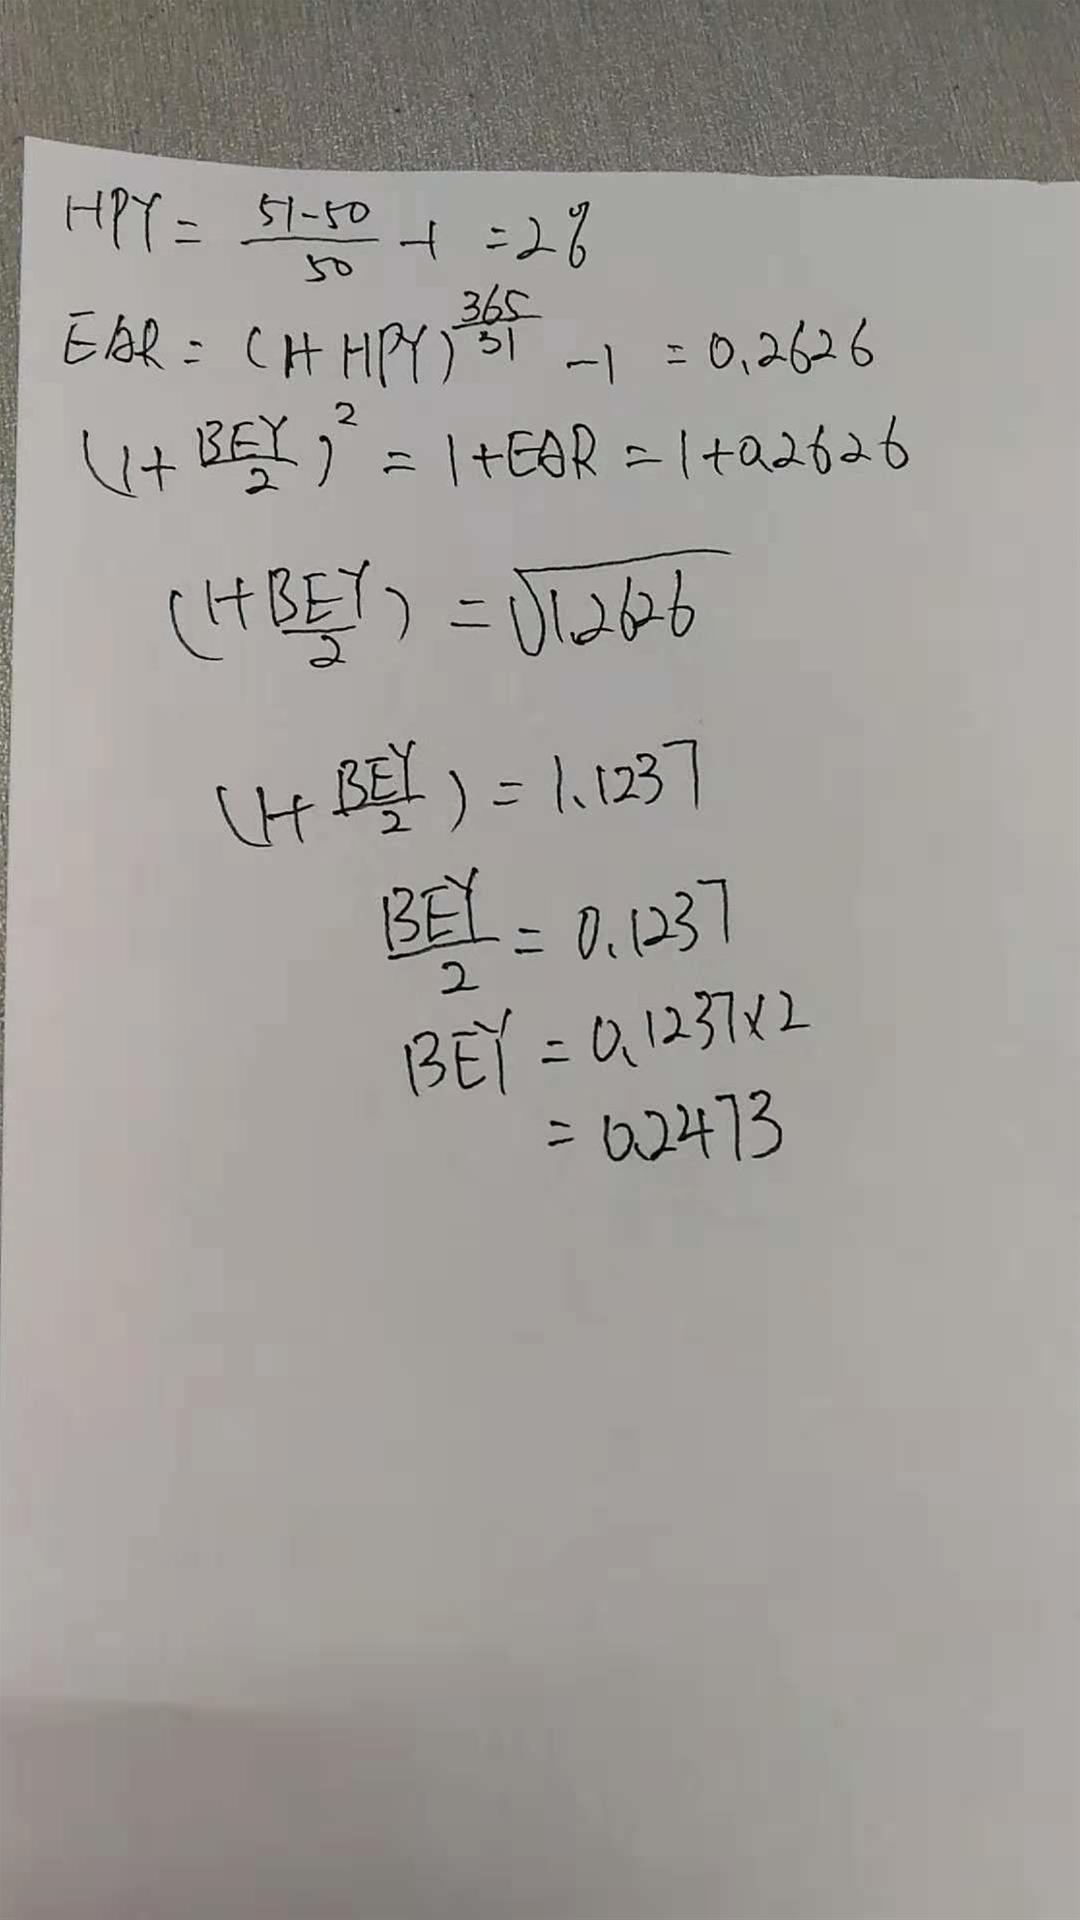 HPY = \frac{51-50}{50} -1 = 2%
EAR = (1+HPY)^{\frac{365}{31}} -1 = 0.2626
(1+\frac{BEY}{2})^2 = 1+EAR = 1+0.2626
(1+\frac{BEY}{2}) = \sqrt{1.2626}
(1+\frac{BEY}{2}) = 1.1237
\frac{BEY}{2} = 0.1237
BEY = 0.1237×2
= 0.2473